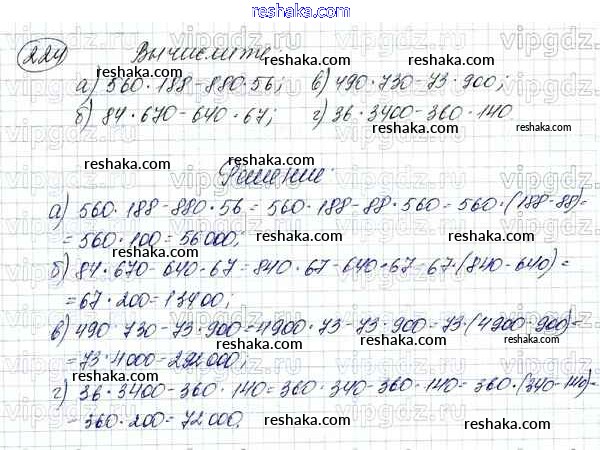 reshaka.com
224 Вычислите
а) 560·188-880·56; в) 490·730-73·900;
б) 84·670-640·67; г) 36·3400-360·140
Решение:
а) 560·188-880·56=560·188-88·560=560·(188-88)=
=560·100=56000;
б) 84·670-640·67=840·67-640·67=67·(840-640)=
=67·200=13400;
в) 490·730-73·900=4900·73-73·900=73·(4900-900)=
=73·4000=292000;
г) 36·3400-360·140=360·340-360·140=360·(340-140)=
=360·200=72000.